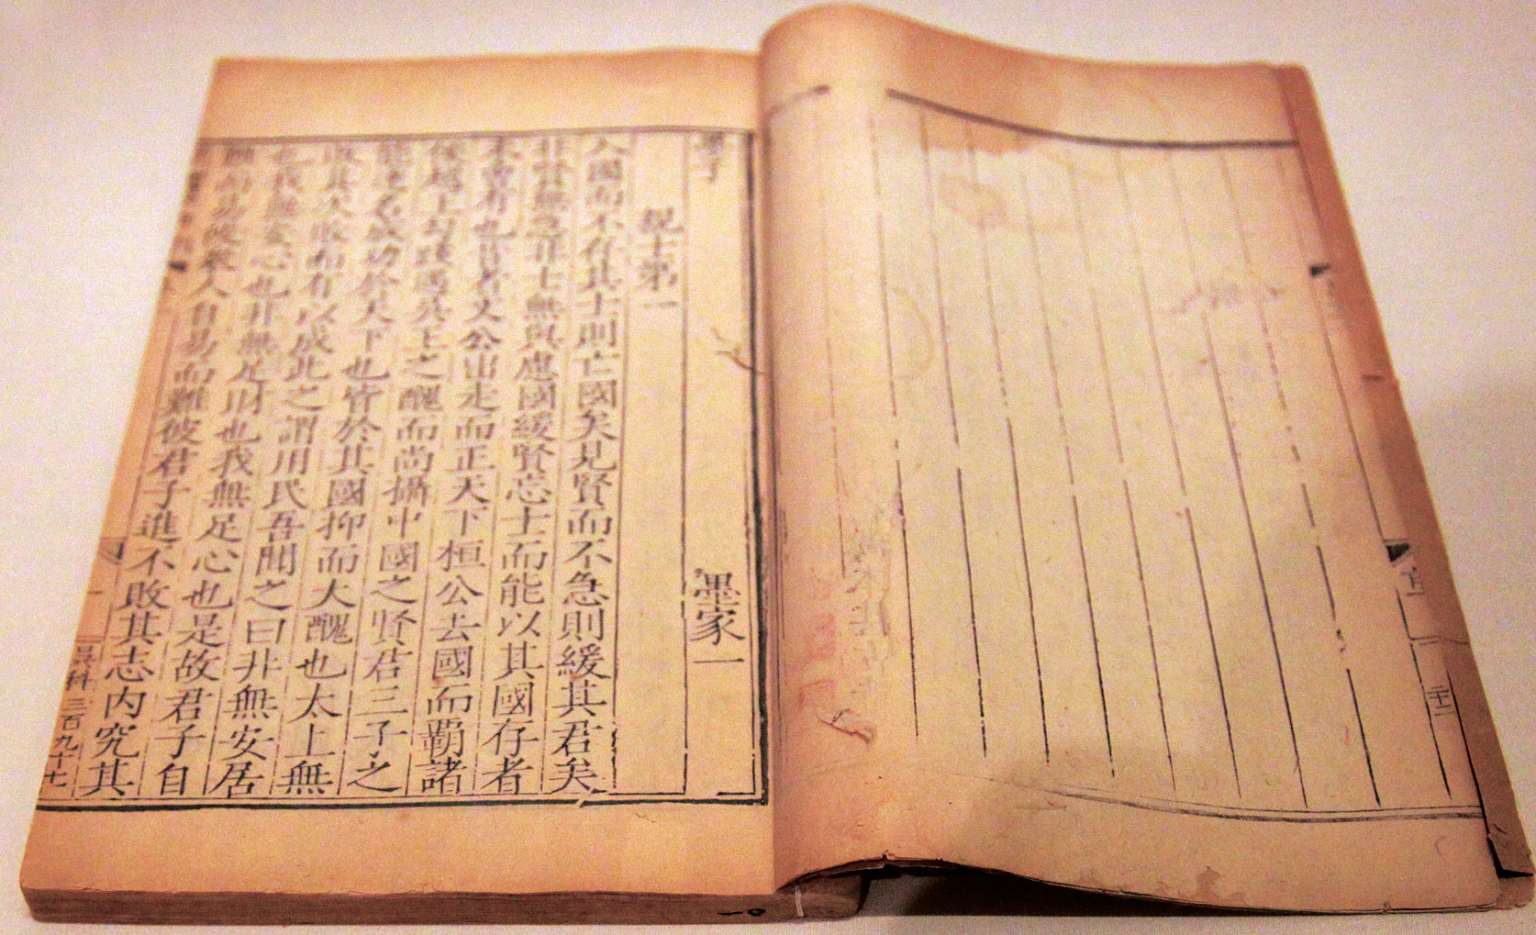 墨子 墨家一
親士第一
入國而不存其士則亡國矣見賢而不急則緩其君矣
非賢無急非士無與慮國緩賢忘士而能以其國存者
未曾有也昔者文公出走而正天下桓公去國而覇諸
侯越王句踐遇吳王之醜而尚攝中國之賢君三子之
能達名成功於天下也皆於其國抑而大醜也太上無
敗其次敗而有以成此之謂用民吾聞之曰非無安居
也我無安心也非無足財也我無足心也是故君子自
難而易彼衆人自易而難彼君子進不敗其志内究其
三百九十七